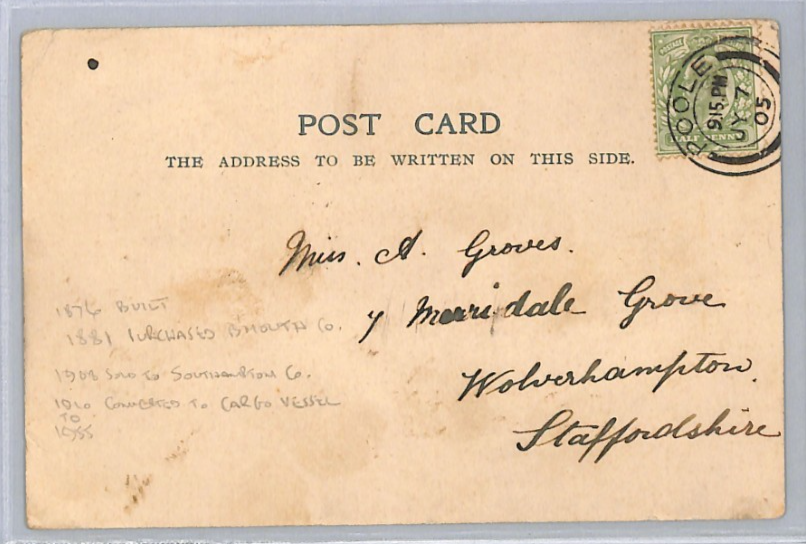 POST CARD
THE ADDRESS TO BE WRITTEN ON THIS SIDE.
POOLE
9.15.PM
JY 7
05
HALF PENNY
Miss. A. Groves.
7 Merridale Grove
Wolverhampton.
Staffordshire
1876 BUILT
1881 PURCHASED B'MOUTH Co.
1908 SOLD TO SOUTHAMPTON Co.
1910 CONVERTED TO CARGO VESSEL
TO